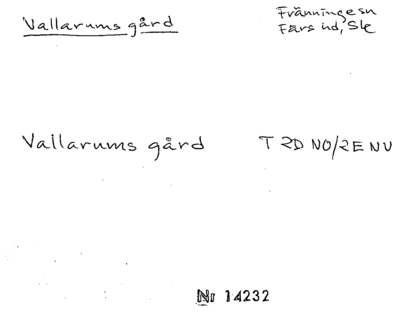 Vallarums gård
Fränninge sn
Färs hd, Sk
Vallarums gård T 2D NO/2E NV
Nr 14232